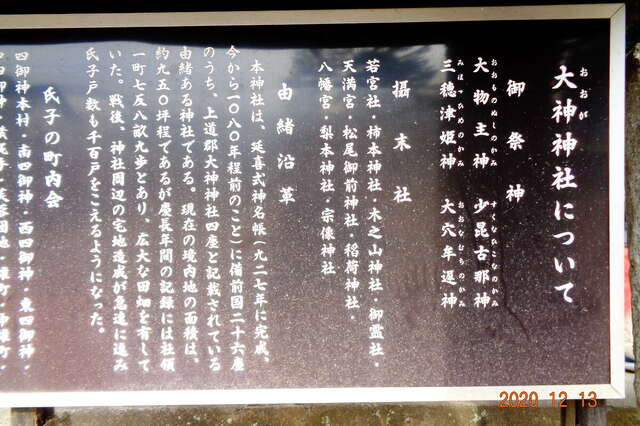 大神神社について
おおが
御祭神
大物主神 少昆古那神
おおものぬしのかみ すくなひこなのかみ
三穂津姫神 大穴牟遅神
みほつひめのかみ おおなむちのかみ
攝末社
若宮社・柿本神社・木之山神社・御霊社・
天満宮・松尾御前神社・稲荷神社・
八幡宮・梨本神社・宗像神社
由緒沿革
本神社は、延喜式神名帳(九二七年に完成、
今から一〇八〇年程前のこと)に備前国二十六座
のうち、上道郡大神神社四座と記載されている
由緒ある神社である。現在の境内地の面積は、
約九五〇坪程であるが慶長年間の記録には社領
一町七反八畝九歩とあり、広大な田畑を有して
いた。戦後、神社周辺の宅地造成が急速に進み
氏子戸数も千百戸をこえるようになった。
氏子の町内会
四御神本村・南四御神・西四御神・東四御神・
2020 12 13